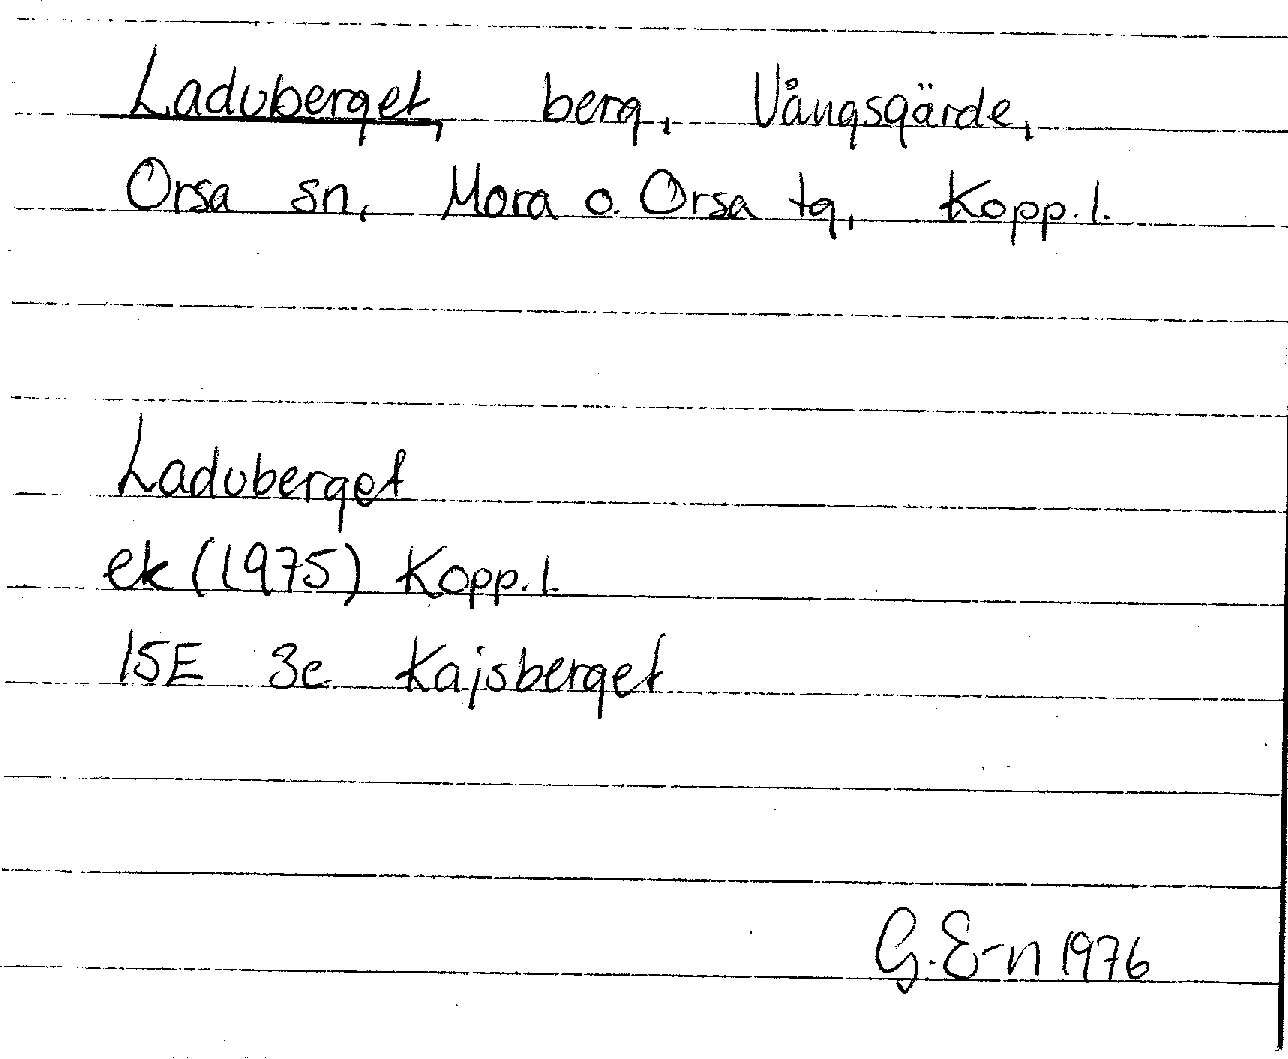 Laduberget, berg, Vångsgärde,
Orsa sn, Mora o. Orsa tg, Kopp. l.
Laduberget
ek (1975) Kopp. l.
15E 3e Kajsberget
G. E-n 1976